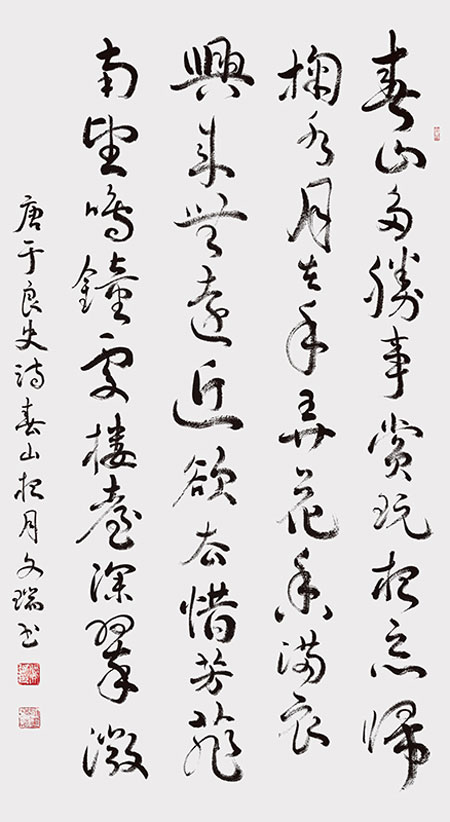 春山多勝事賞玩夜忘歸
掬水月在手弄花香滿衣
興來無遠近欲去惜芳菲
南望鳴鐘處樓臺深翠微
唐于良史詩春山夜月文瑞書